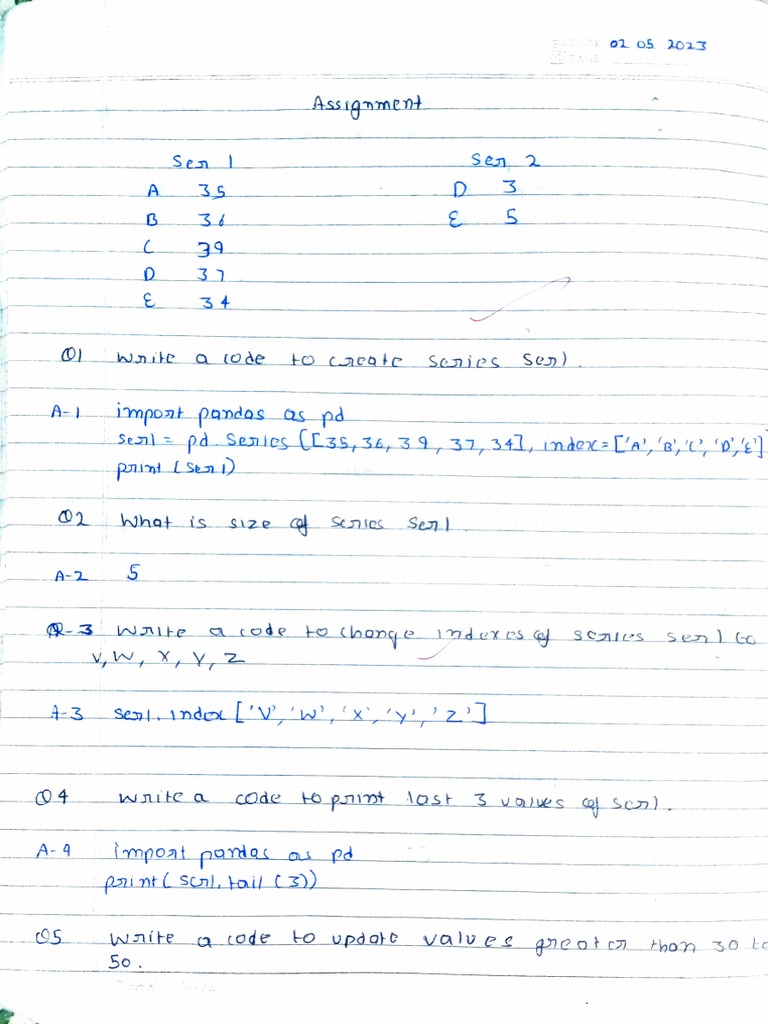 02 05 2023
Assignment
Ser 1 Ser 2
A 35 D 3
B 36 E 5
C 39
D 37
E 34
Q1 Write a code to create series Ser1.
A-1 import pandas as pd
ser1 = pd. Series ([35,36,39,37,34], index=['A','B','C','D','E']
print (ser1)
Q2 What is size of series Ser1
A-2 5
Q-3 Write a code to change indexes of series ser1 to
V, W, X, Y, Z
A-3 ser1.index ['V','W','X','Y','Z']
Q4 Write a code to print last 3 values of ser1.
A-4 import pandas as pd
print(ser1.tail (3))
Q5 Write a code to update values greater than 30 to
50.